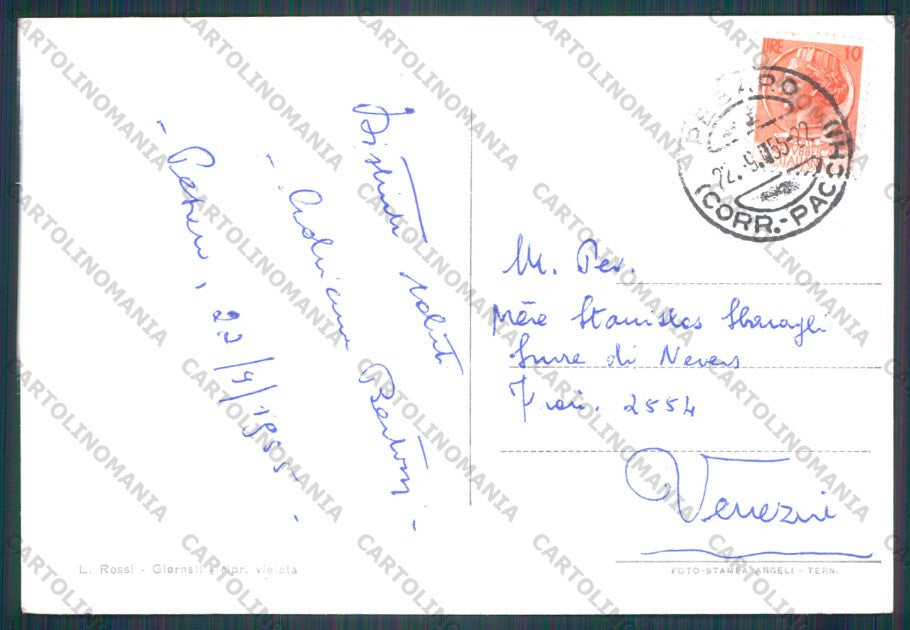 Distinti saluti
- Adriana Bertoni -
- Pesaro, 22/9/1955 -
LIRE 10
PESARO
22.9.55-22
(CORR.-PACCHI)
M. Rev.
Mère Stanislas Sbaragli
Suore di Nevers
2554
Venezia
L. Rossi - Giornali - ripr. vietata
FOTO-STAMPA ANGELI - TERNI
CARTOLINOMANIA